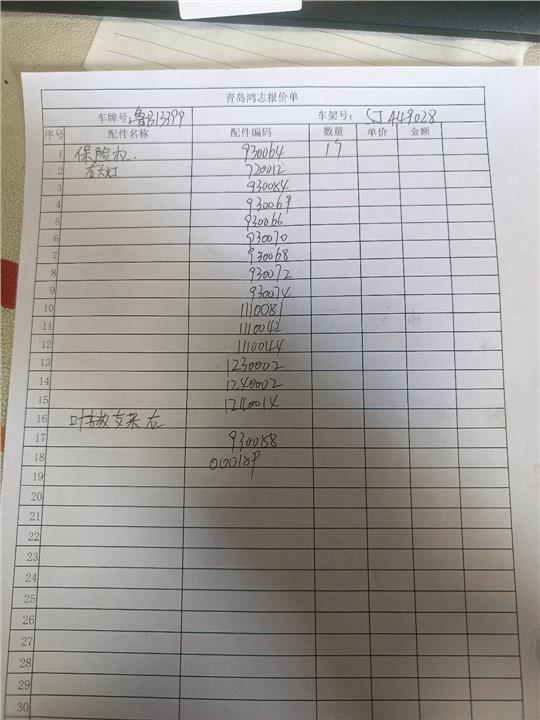 青岛鸿志报价单
车牌号: 鲁B13399 车架号: SJA449028
序号 配件名称 配件编码 数量 单价 金额
1 保险杠. 930064 1个
2 右大灯 720012
3 930084
4 930069
5 930066
6 930070
7 930068
8 930072
9 930074
10 1110081
11 1110042
12 1110044
13 1230002
14 1240002
15 1240014
16 叶子板支架右
17 930058
18
19
20
21
22
23
24
25
26
27
28
29
30